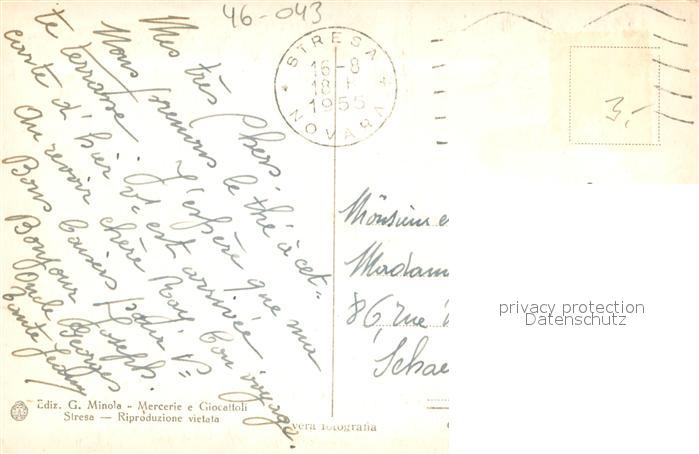 46-043
STRESA
16-8
1955
NOVARA
3,-
Mes très Chers
Nous prenons le thé à cet-
te terrasse. J'espère que ma
carte d'hier vs est arrivée
Au revoir chère Ray bon voyage.
Bons baisers pour vs
Bonjour Joseph.
Oncle Georges
Tante Jenny
Monsieur e
Madam
86 rue
Schae
privacy protection
Datenschutz
Ediz. G. Minola - Mercerie e Giocattoli
Stresa — Riproduzione vietata
vera fotografia